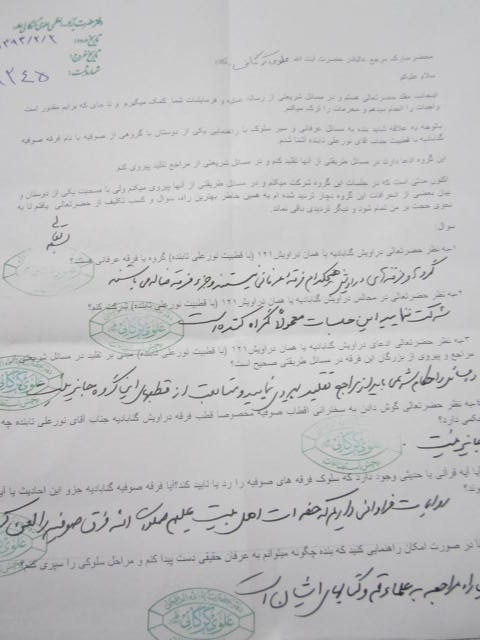 دفتر حضرت آیت الله العظمی علوی گرگانی
تاریخ ورود: ۱۳۹۳/۲/۲
تاریخ خروج:
شماره ثبت: ۲۴۵
محضر مبارک مرجع عالیقدر حضرت آیت الله علوی گرگانی
سلام علیکم
اینجانب مقلد حضرتعالی هستم و در مسائل شریعتی از رساله عملیه و فرمایشات شما کمک میگیرم و تا جای که برایم مقدور است
واجبات را انجام میدهم و محرمات را ترک میکنم.
باتوجه به علاقه شدید بنده به مسائل عرفانی و سیر سلوک با راهنمایی یکی از دوستان با گروهی از صوفیه با نام فرقه صوفیه
گنابادیه با قطبیت جناب آقای نورعلی تابنده آشنا شدم.
این گروه ادعا دارند در مسائل طریقتی از آنها تقلید کنم و در مسائل شریعتی از مراجع تقلید پیروی کنم
اکنون مدتی است که در جلسات این گروه شرکت میکنم و در مسائل طریقتی از آنها پیروی میکنم ولی با صحبت یکی از دوستان و
بیان بعضی از انحرافات این گروه دچار تردید شده ام به همین خاطر بهترین راه، سوال و کسب تکلیف از حضرتعالی یافتم تا به
نحوی حجت بر من تمام شود و دیگر تردیدی باقی نماند.
سوال:
بسمه تعالی
۱-به نظر حضرتعالی دراویش گنابادیه یا همان دراویش ۱۲۱ (با قطبیت نورعلی تابنده) گروه یا فرقه عرفانی هستند؟
گروه و فرقه‌های دراویش هیچکدام فرقه عرفانی نیستند و جزو فرقه ضاله می باشند
۲-به نظر حضرتعالی در مجالس دراویش گنابادیه یا همان دراویش ۱۲۱ (با قطبیت نورعلی تابنده) شرکت کنم؟
شرکت ننمایید این جلسات معمولاً گمراه کننده است
۳-به نظر حضرتعالی ادعای دراویش گنابادیه یا همان دراویش ۱۲۱ (با قطبیت نورعلی تابنده) مبنی بر تقلید در مسائل شریعتی از
مراجع و پیروی از بزرگان این فرقه در مسائل طریقتی صحیح است؟
در مسائل و احکام شرعی باید از مراجع تقلید پیروی نمایید و متابعت از قطبهای این گروه جایز نیست
به نظر حضرتعالی گوش دادن به سخنرانی اقطاب صوفیه مخصوصا قطب فرقه دراویش گنابادیه جناب آقای نورعلی تابنده چه
حکمی دارد؟
جایز نیست.
آیا آیه قرآنی یا حدیثی وجود دارد که سلوک فرقه های صوفیه را رد یا تایید کند؟آیا فرقه صوفیه گنابادیه جزو این احادیث یا آیا
روایات فراوانی داریم که حضرات اهل بیت علیهم صلوات الله فرق صوفیه را لعن
در صورت امکان راهنمایی کنید که بنده چگونه میتوانم به عرفان حقیقی دست پیدا کنم و مراحل سلوکی را سپری کنم؟
مراجعه به علماء قم و کتابهای ایشان است
علوی گرگانی